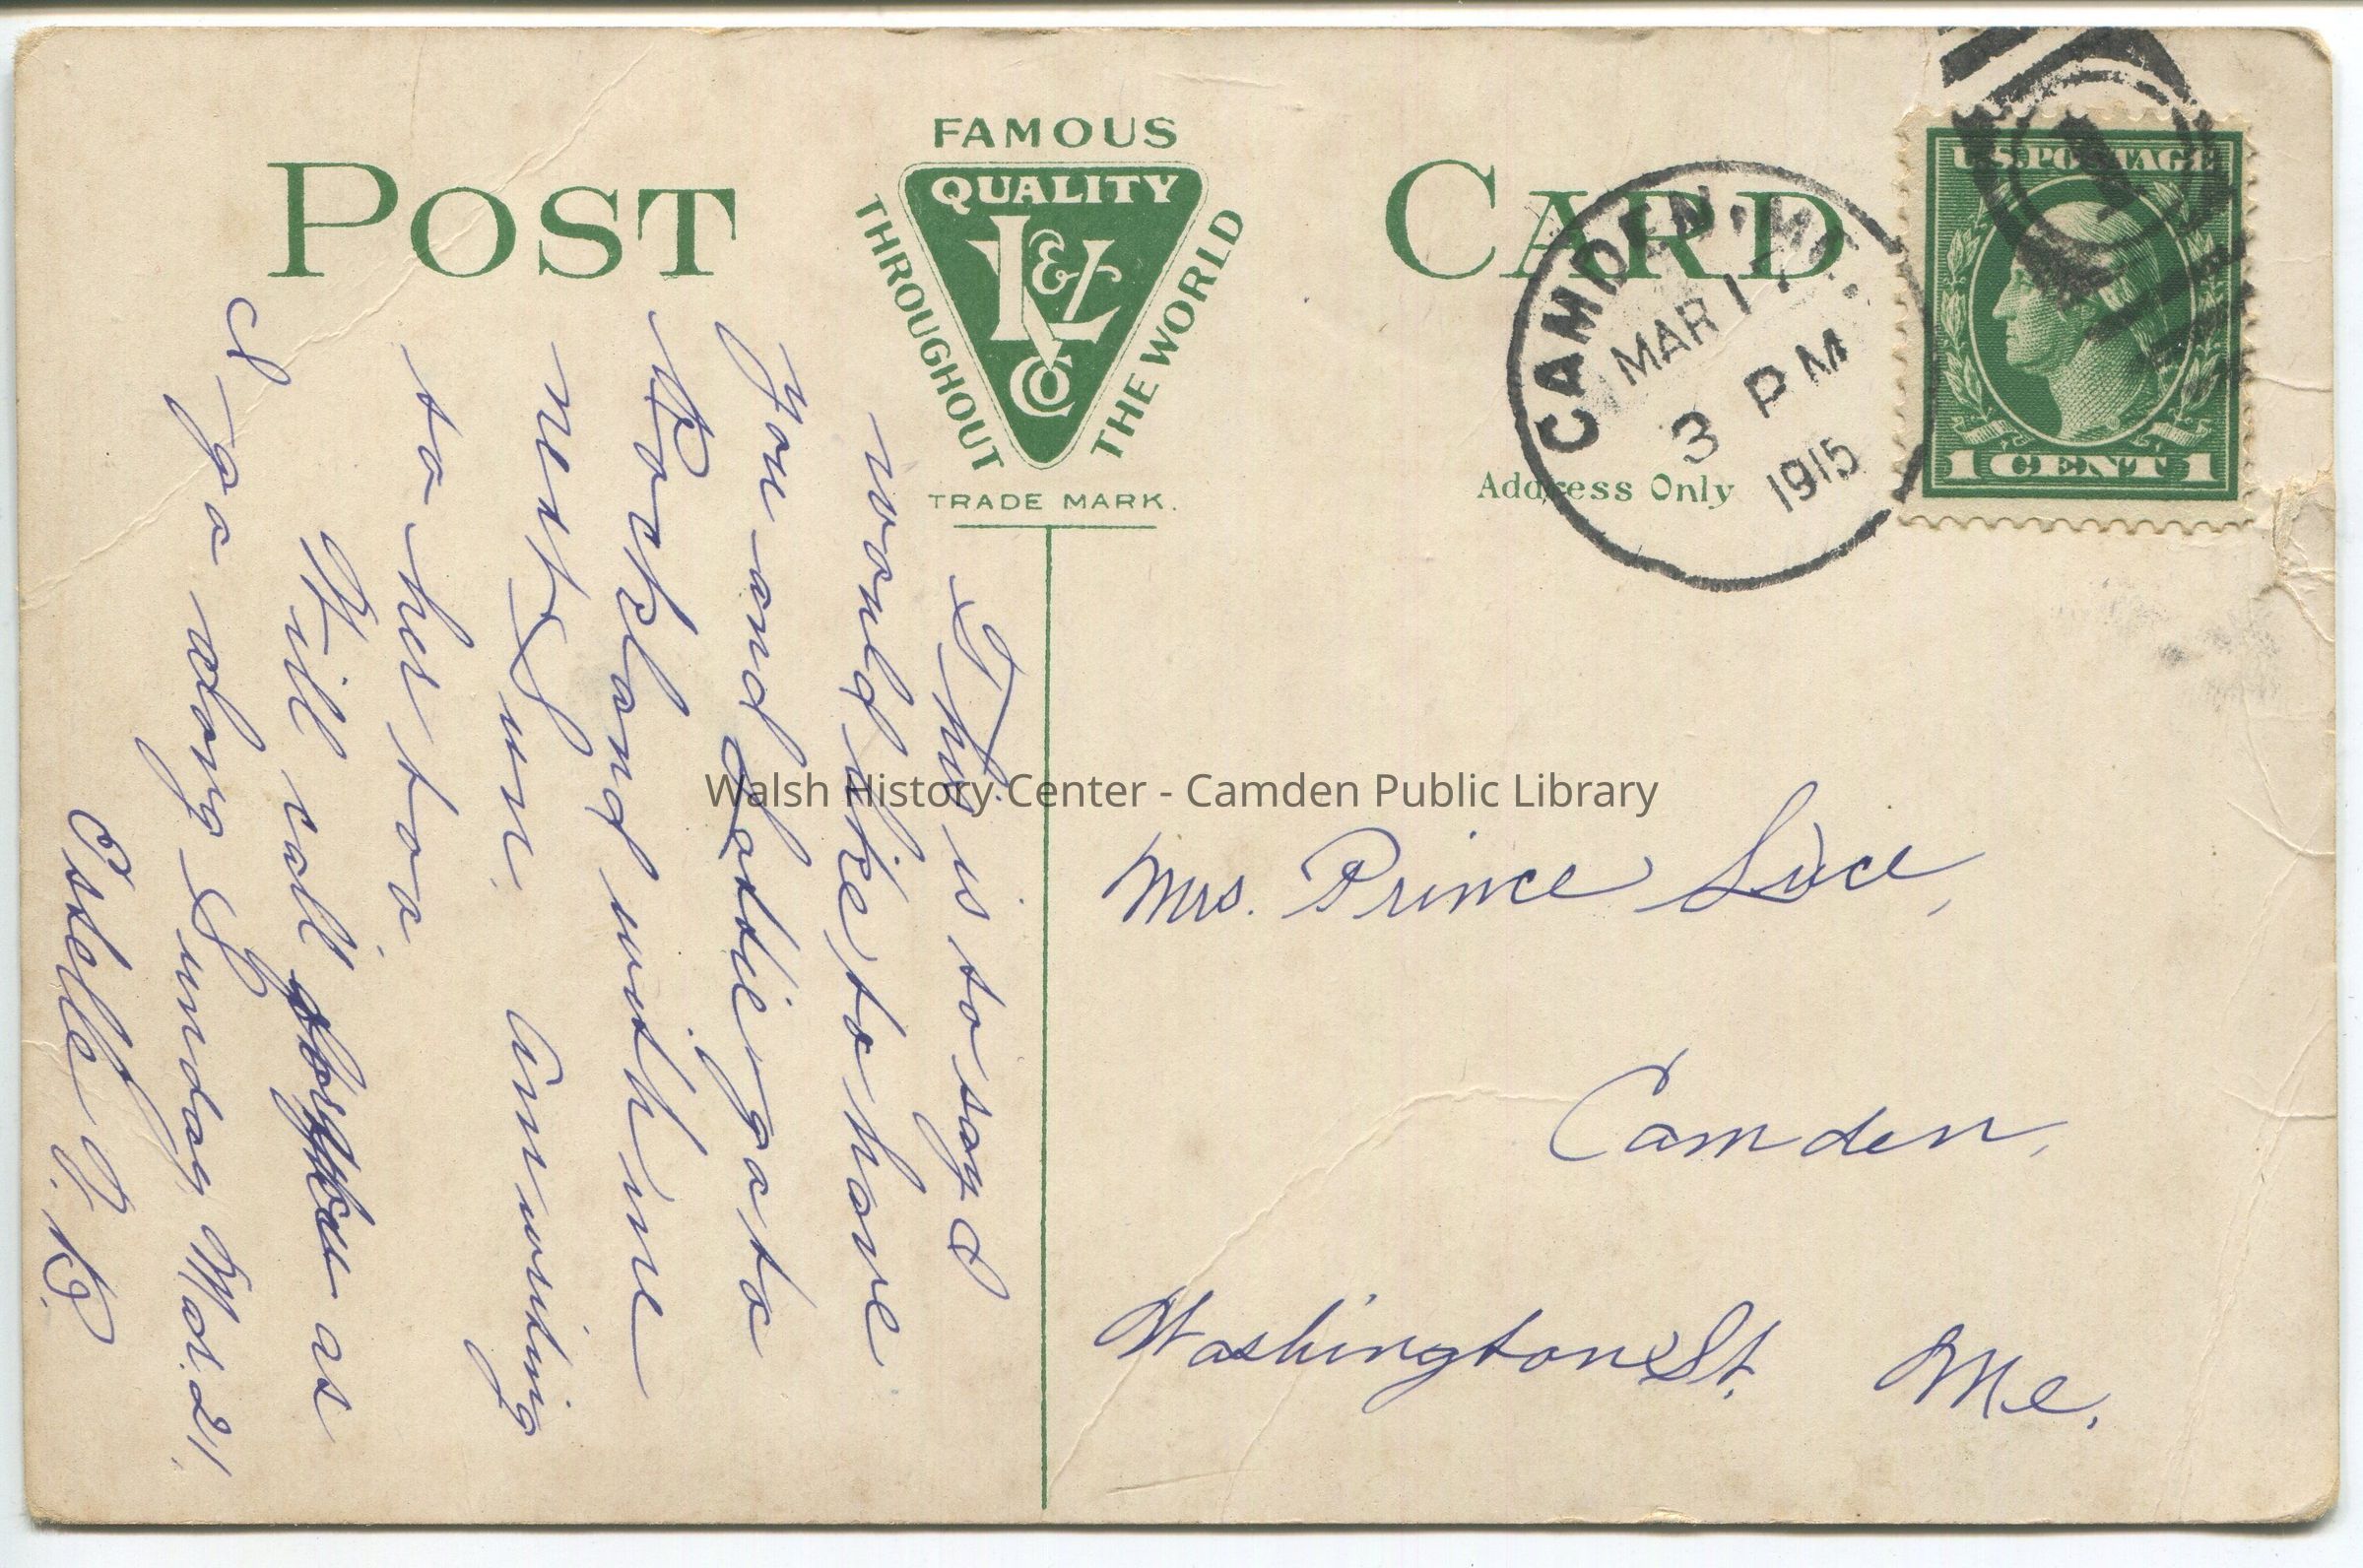 POST CARD
FAMOUS
QUALITY
L & Co
THROUGHOUT
THE WORLD
TRADE MARK.
Address Only
CAMDEN, ME.
MAR 17
3 PM
1915
U.S. POSTAGE
1 CENT 1
This is to say I
would like to have
you and Lottie go to
Rockland with me
next Sun. Am writing
to her too.
Will call for you as
I go along Sunday Mar. 21.
Estelle
Mrs. Prince Luce,
Camden,
Washington St. Me.
Walsh History Center - Camden Public Library